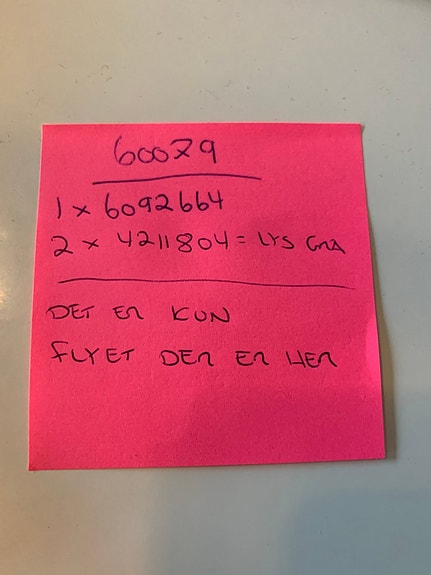 60079
1 x 6092664
2 x 4211804 = LYS GRA
DET ER KUN
FLYET DER ER HER